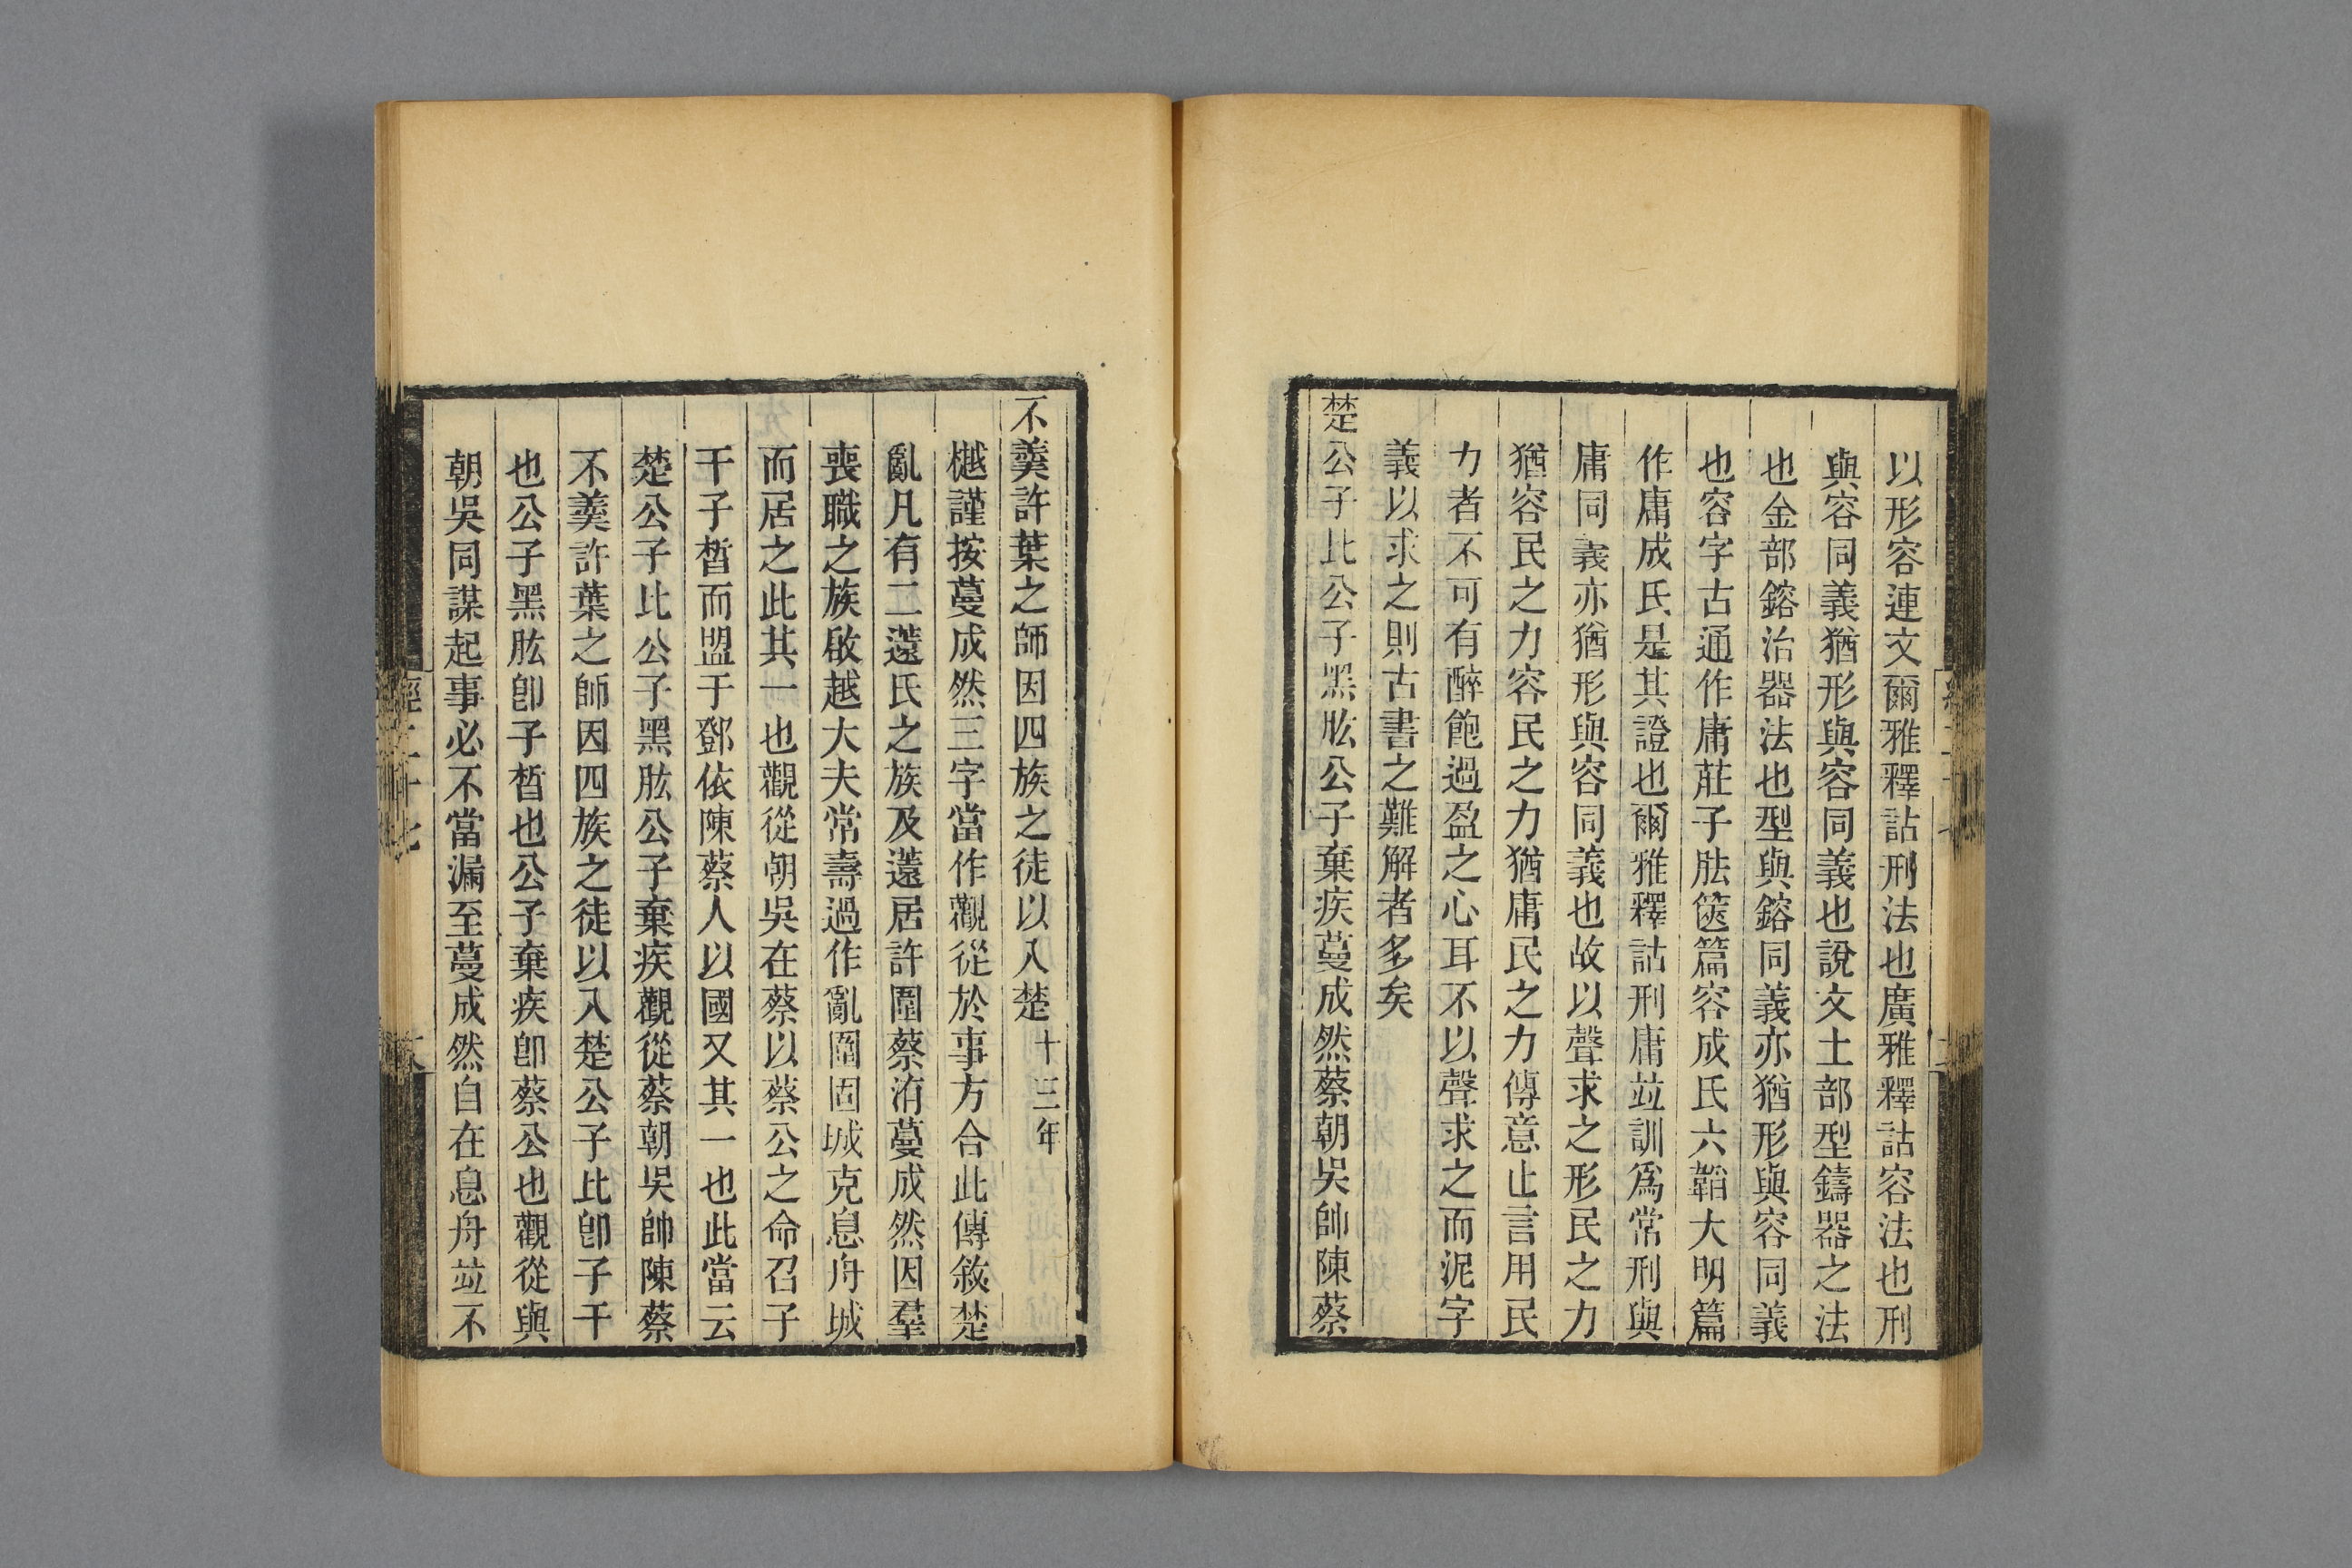 以形容連文爾雅釋詁刑法也廣雅釋詁容法也刑
與容同義猶形與容同義也說文土部型鑄器之法
也金部鎔冶器法也型與鎔同義亦猶形與容同義
也容字古通作庸莊子胠篋篇容成氏六韜大明篇
作庸成氏是其證也爾雅釋詁刑庸竝訓爲常刑與
庸同義亦猶形與容同義也故以聲求之形民之力
猶容民之力容民之力猶庸民之力傳意止言用民
力者不可有醉飽過盈之心耳不以聲求之而泥字
義以求之則古書之難解者多矣
楚公子比公子黑肱公子棄疾蔓成然蔡朝吳帥陳蔡
不羹許葉之師因四族之徒以入楚十三年
樾謹按蔓成然三字當作觀從於事方合此傳敘楚
亂凡有二薳氏之族及薳居許圍蔡洧蔓成然因羣
喪職之族啟越大夫常壽過作亂圍固城克息舟城
而居之此其一也觀從朝吳在蔡以蔡公之命召子
干子皙而盟于鄧依陳蔡人以國又其一也此當云
楚公子比公子黑肱公子棄疾觀從蔡朝吳帥陳蔡
不羹許葉之師因四族之徒以入楚公子比卽子干
也公子黑肱卽子皙也公子棄疾卽蔡公也觀從與
朝吳同謀起事必不當漏至蔓成然自在息舟竝不
經二十七